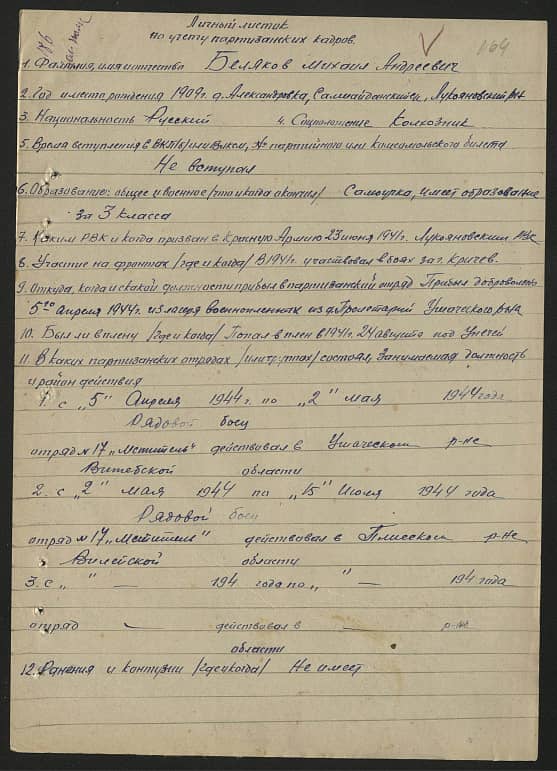 Личный листик
по учету партизанских кадров.
164
1. Фамилия, имя и отчество Беляков Михаил Андреевич
2. Год и место рождения 1909 г. д. Александровка, Лукояновский р-н
3. Национальность Русский 4. Соцположение Колхозник
5. Время вступления в ВКП(б) или ВЛКСМ, № партийного или комсомольского билета
Не вступал
6. Образование: общее и военное /что и когда окончил/ Самоучка, имеет образование
за 3 класса
7. Каким РВК и когда призван в Красную Армию 23 июня 1941 г. Лукояновским РВК
8. Участие на фронтах /где и когда/ В 1941 г. участвовал в боях за г. Кричев.
9. Откуда, когда и с какой должности прибыл в партизанский отряд Прибыл добровольно
5го Апреля 1944 г. из лагеря военнопленных из д. Пролетарий Ушачского р-на
10. Был ли в плену /где и когда/ Попал в плен в 1941 г. 24 августа под Унечей
11. В каких партизанских отрядах /или группах/ состоял, занимаемая должность
и район действия
1. с „5" Апреля 1944 г. по „2" мая 1944 года
Рядовой боец
отряд № 17 „Мститель" действовал в Ушачском р-не
Витебской области
2. с „2" мая 1944 по „15" Июля 1944 года
Рядовой боец
отряд № 17 „Мститель" действовал в Плисском р-не
Вилейской области
3. с „ " — 194 года по „ " — 194 года
отряд — действовал в — р-не
области
12. Ранения и контузии /где и когда/ Не имеет